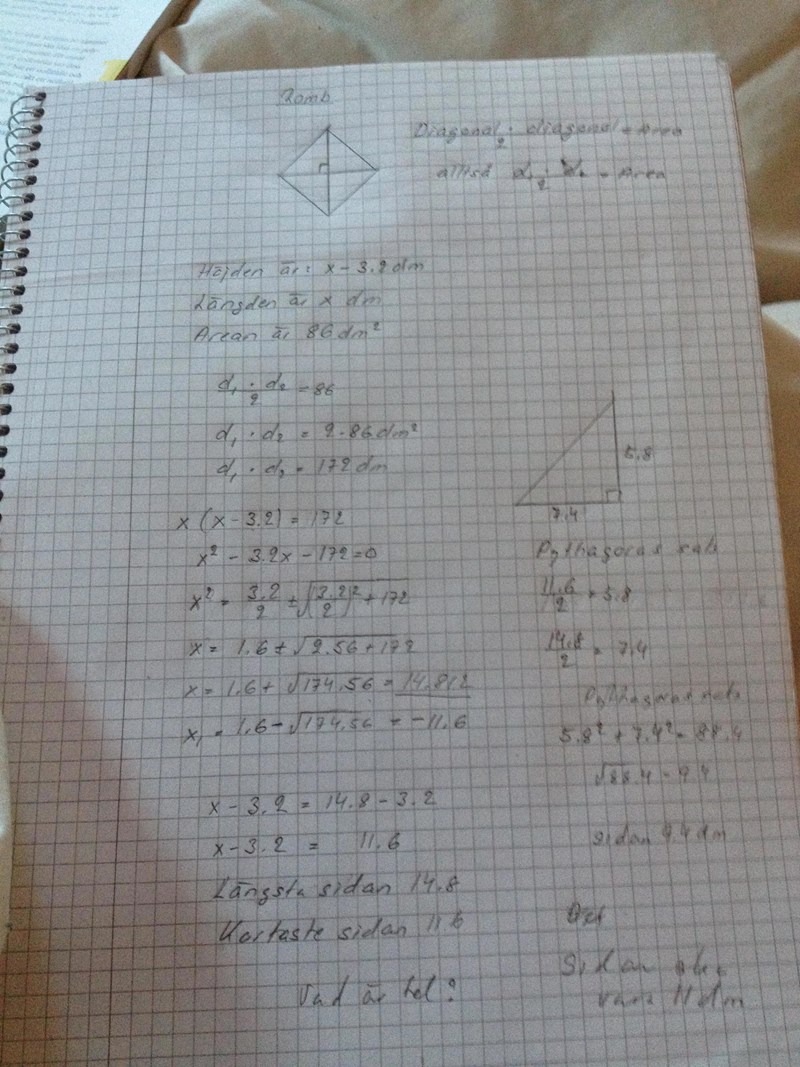 Romb
Diagonal · diagonal = Area
2
alltså d₁ · d₂ = Area
2
Höjden är = x - 3.2 dm
Längden är x dm
Arean är 86 dm²
d₁ · d₂ = 86
2
d₁ · d₂ = 2 · 86 dm²
d₁ · d₂ = 172 dm
x (x - 3.2) = 172
x² - 3.2x - 172 = 0
x² = 3.2/2 ± √(3.2/2)² + 172
x = 1.6 + √2.56 + 172
x = 1.6 + √174.56 = 14.812
x₁ = 1.6 - √174.56 = -11.6
x - 3.2 = 14.8 - 3.2
x - 3.2 = 11.6
Längsta sidan 14.8
Kortaste sidan 11.6
Vad är fel?
5.8
7.4
Pythagoras sats
11.6/2 = 5.8
14.8/2 = 7.4
Pythagoras sats
5.8² + 7.4² = 88.4
√88.4 = 9.4
Sidan 9.4 dm
Sidan ska
vara 11 dm